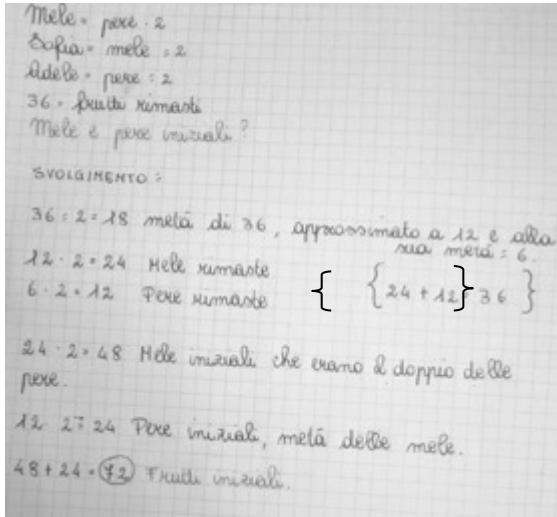 Mele = pere · 2
Sofia = mele : 2
Adele = pere : 2
36 = frutti rimasti
Mele e pere iniziali?
SVOLGIMENTO:
36 : 2 = 18 metà di 36, approssimato a 12 e alla
sua metà = 6.
12 · 2 = 24 Mele rimaste
6 · 2 = 12 Pere rimaste { {24 + 12} = 36 }
24 · 2 = 48 Mele iniziali che erano il doppio delle
pere.
12 · 2 = 24 Pere iniziali, metà delle mele.
48 + 24 = 72 Frutti iniziali.